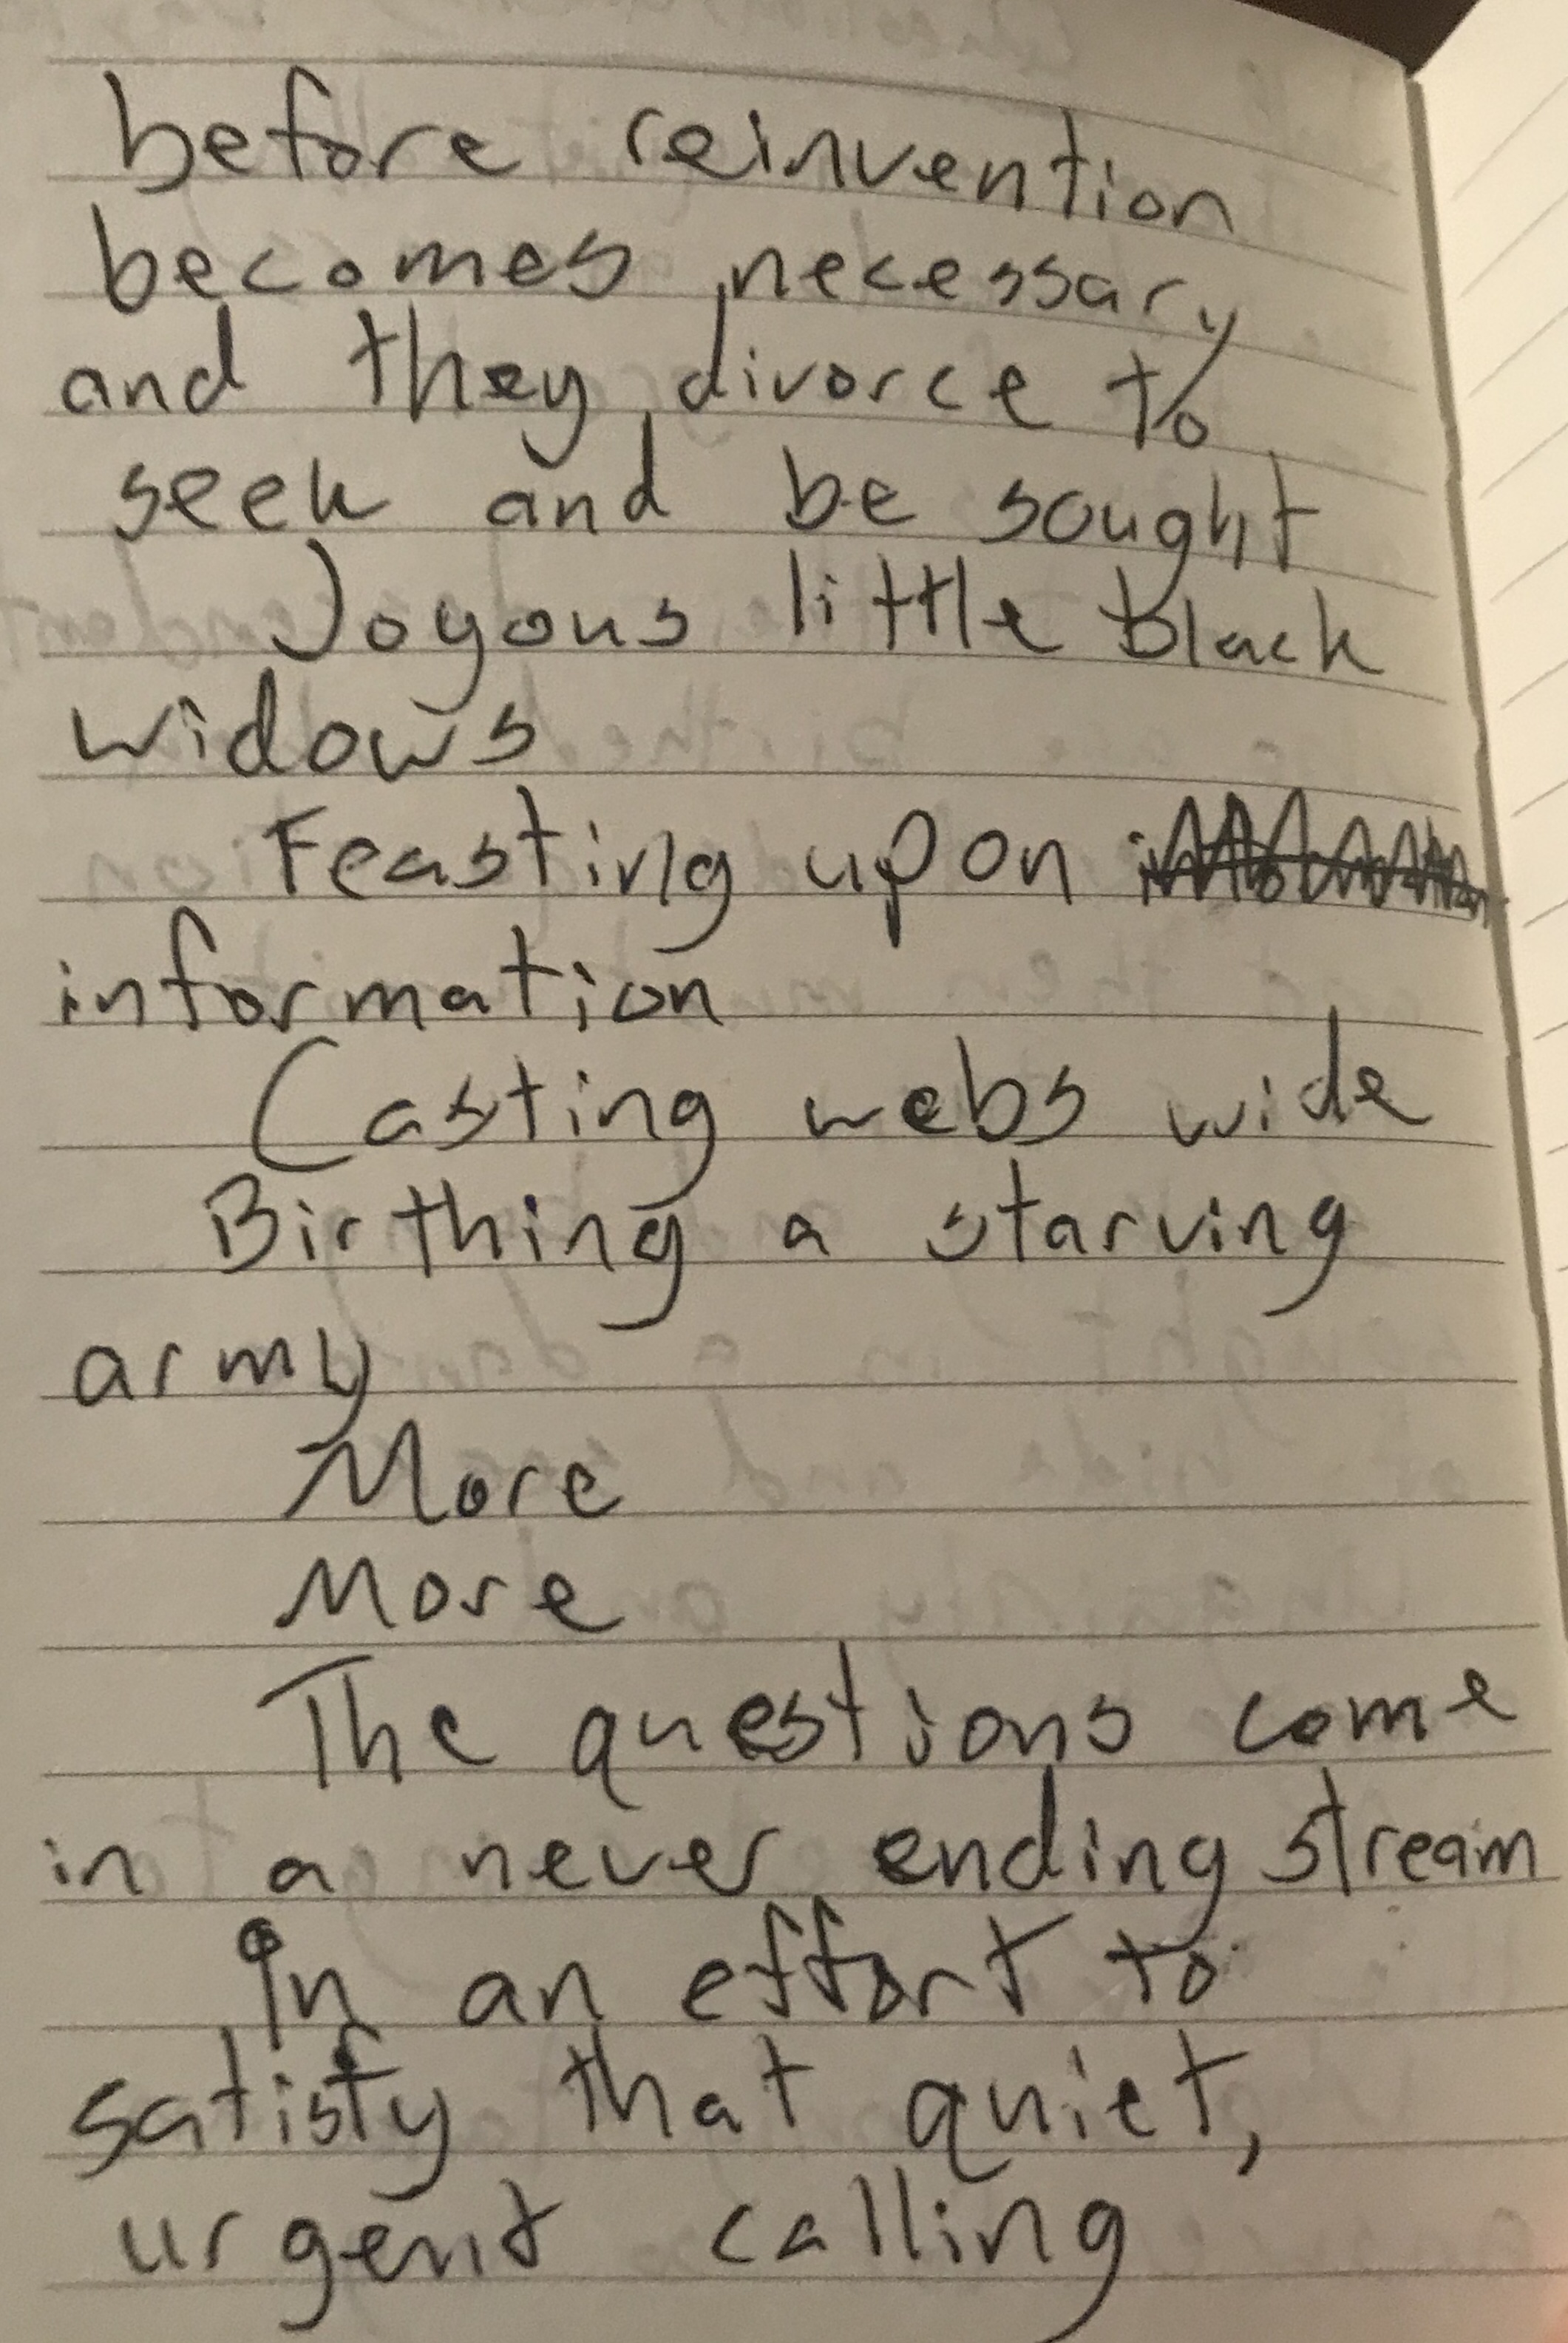 before reinvention
becomes necessary
and they divorce to
seek and be sought
Joyous little black
widows
Feasting upon
information
Casting webs wide
Birthing a starving
army
More
More
The questions come
in a never ending stream
In an effort to
satisfy that quiet,
urgent calling